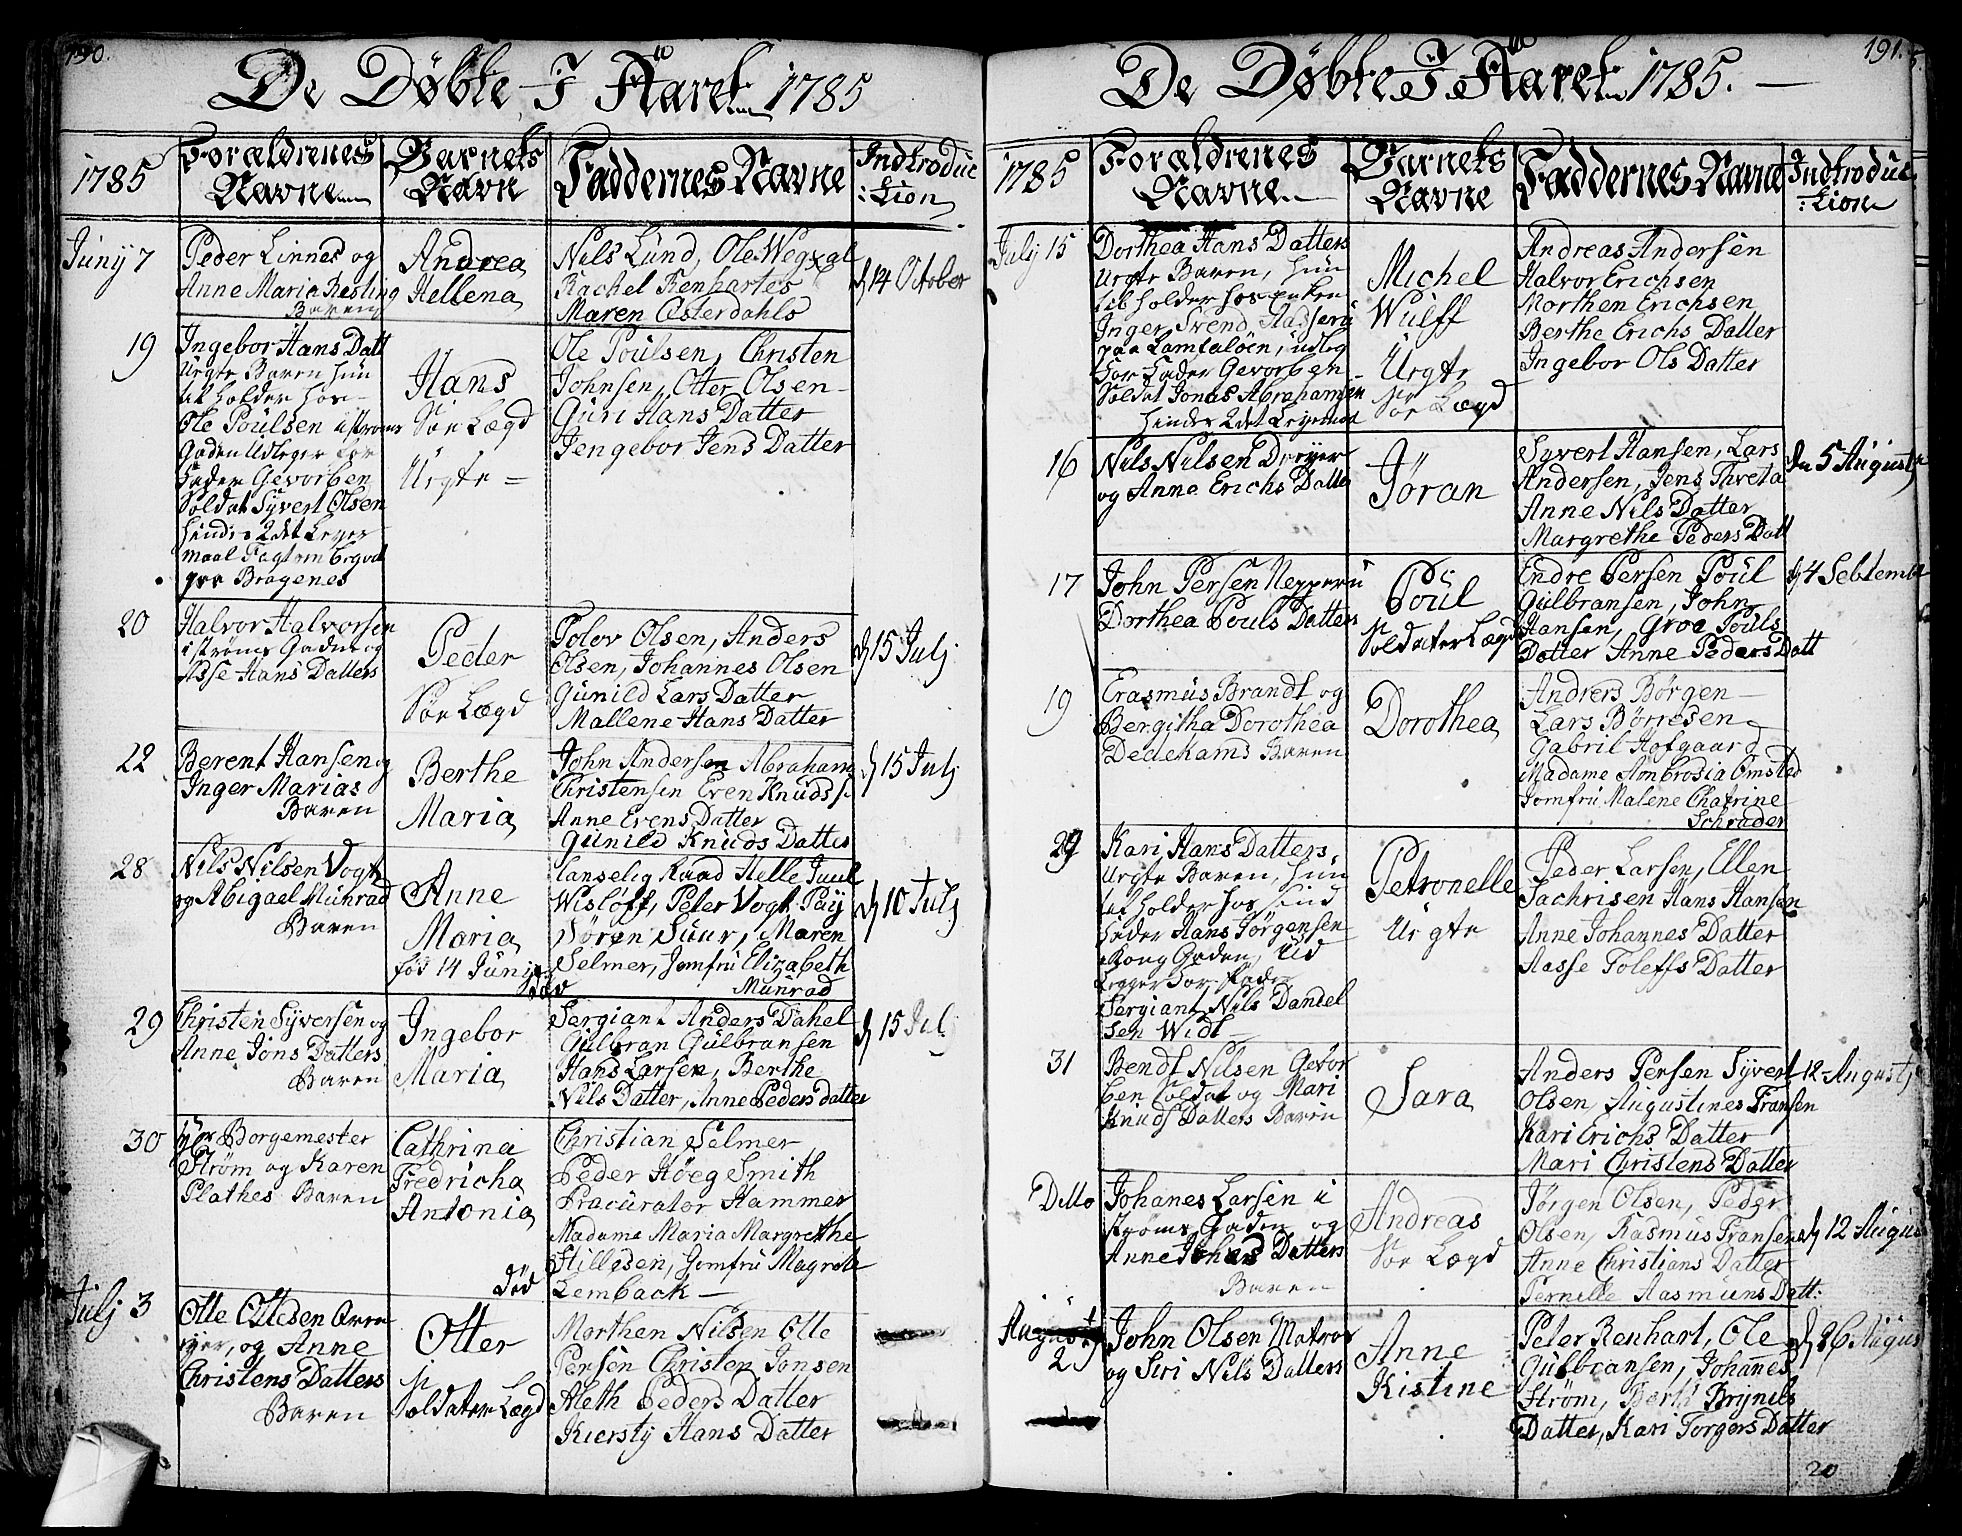 190.
De Døbte I Aaret 1785
1785
Forældrenes Navne
Barnets Navn
Faddernes Navne
Indtroduc:tion
Junij 7
Peder Linnes og
Anne Maria Resting
Baren
Andrea
Hellena
Nils Lund, Ole Wegxal
Rachel Renhartes
Maren Østerdahls
d 14 October
19
Ingebor Hans Datt
Urgte Baren hun
til holder hos
Ole Poulsen i strøms
Gaden Udleger for
Fader Gevorben
Soldat Syvert Olsen
hendes 2det Leyer
maal
paa Bragenes
Hans
Sør Lægd
Urgte
Ole Poulsen, Christen
Johnsen, Otter Olsen
Guri Hans Datter
Jengebor Jens Datter
20
Halvor Halvorsen
i strøms Gaden og
Asse Hans Datters
Peder
Sør Lægd
Tolov Olsen, Anders
Olsen, Johannes Olsen
Gunild Lars Datter
Mallene Hans Datter
d 15 Julj
22
Berent Hansen og
Inger Marias
Baren
Berthe
Maria
John Andersen Abraham
Christensen Even Knuds s.
Anne Evens Datter
Gunild Knuds Datter
d 15 Julj
28
Nils Nilsen Vogt
og Abigael Munrad
Baren
Anne
Maria
fød 14 Junij
død
Canselig Raad Helle Juul
Wisløff, Peter Vogt Paÿ
Søren Suur, Maren
Selmer, Jomfru Elizabeth
Munrad
d 10 Julj
29
Christen Syversen og
Anne Jons Datters
Baren
Ingebor
Maria
Sergiant Anders Dahel
Gulbran Gulbransen
Hans Larsen, Berthe
Nils Datter, Anne Peders datter
d 15 Julj
30
Hør Borgemester
Strøm og Karen
Plathes Baren
Cathrina
Fredricha
Antonia
død
Christian Selmer
Peder Høeg Smith
Pracurator Hammer
Madame Maria Margrethe
Stillesen, Jomfru Magrete
Lemback
Julj 3
Otte Ottesen
og Anne
Christens Datters
Baren
Otter
Soldater Lægd
Morthen Nilsen Otte
Persen Christen Jonsen
Aleth Peders Datter
Kiersty Hans Datter
191.
De Døbte I Aaret 1785.
1785
Forældrenes Navne
Barnets Navne
Faddernes Navne
Indtroduc:tion
Julj 15
Dorthea Hans Datters
Urgte Baren, hun
til holder hos enken
Inger Svend Aassens
paa Lamtaløen, udleg
For Fader Gevorben
Soldat Jonas Abrahamsen
hendes 2det Leyermaal
Michel
Wulff
Urgte
Sør Lægd
Andreas Andersen
Halvor Erichsen
Morthen Erichsen
Berthe Erichs Datter
Ingebor Ols Datter
16
Nils Nilsen Dreyer
og Anne Erichs Datter
Jöran
Syvert Hansen, Lars
Andersen, Jens Threta
Anne Nils Datter
Margrethe Peders Datt
den 5 Augusti
17
John Persen Nepperu
Dorthea Pouls Datters
Poul
Soldater Lægd
Endre Persen Poul
Gulbransen, John
Hansen, Groe Pouls
Datter Anne Peders Datt
d 4 Sebtemb
19
Erasmus Brandt og
Bergitha Dorothea
Dedekams Baren
Dorothea
Andrers Børgen
Lars Børresen
Gabril Hofgaard
Madame Ambrosia Omsted
Jomfru Malene Chatrine
Schrader
29
Kari Hans Datters
Urgte Baren, hun
til holder hos sind
Fader Hans Jørgensen
Kong Gaden, Ud
legger for Fader
Sergiant Nils Dandel
sen Widt
Petronelle
Urgte
Peder Larsen, Ellen
Sachrisen Hans Hansen
Anne Johannes Datter
Aasse Toleffs Datter
31
Bendt Nilsen Gevor
ben Soldat og Mari
Knuds Datters Baren
Sara
Anders Persen Syvert
Olsen, Augustines Fransen
Kari Erichs Datter
Mari Christens Datter
12 Augustj
Ditto
Johanes Larsen i
strøms Gaden og
Anne Johans Datters
Baren
Andreas
Sør Lægd
Jørgen Olsen, Peder
Olsen, Rasmus Fransen
Anne Christians Datter
Pernille Rasmuns Datt:
d 12 Augus
Augustj
2
John Olsen Matros
og Siri Nils Datters
Anne
Kistine
Peter Renhart, Ole
Gulbransen, Johanes
Strøm, Berth Brynils
Datter, Kari Torgers Datter
d 26 Augus
20